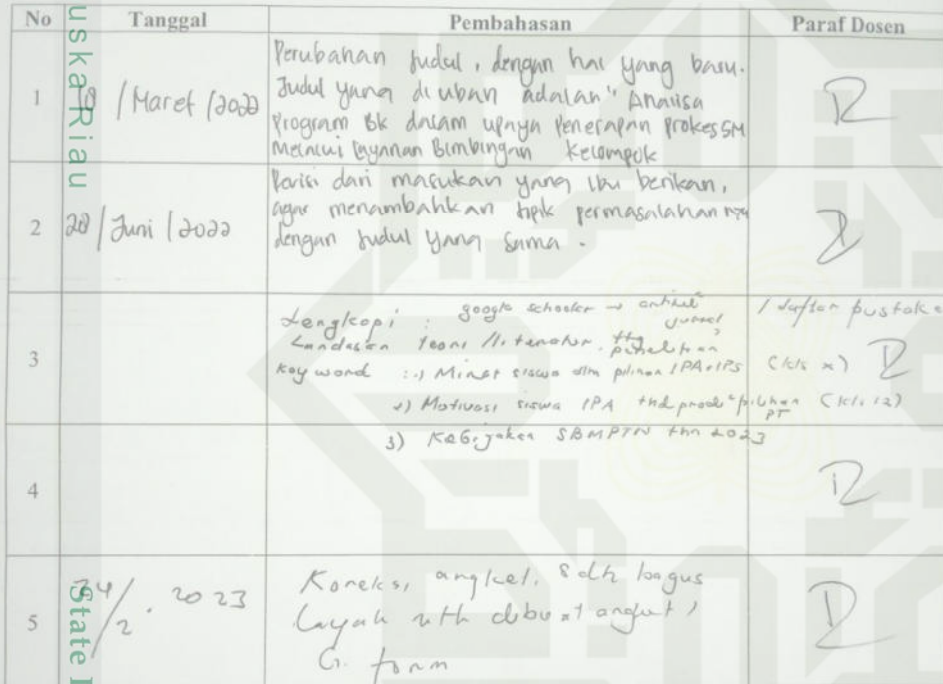 No Tanggal Pembahasan Paraf Dosen
uska Riau
1 / Maret / 2022
Perubahan Judul, dengan hal yang baru.
Judul yang di ubah adalah " Analisa
Program BK dalam upaya Penerapan Prokes 5M
Melalui layanan Bimbingan Kelompok
2 20 / Juni / 2022
Revisi dari masukan yang Ibu berikan,
agar menambahkan topik permasalahan nya
dengan Judul Yang sama.
3
Lengkapi : google schooler → artikel / daftar pustaka
jurnal
Landasan Teori / literatur, ttg penelitian
Key word : 1) Minat siswa dlm pilihan IPA & IPS (kls x)
2) Motivasi siswa IPA thd prodi pilihan (kls 12)
PT
3) Kebijakan SBMPTN thn 2023
4
5 24/2. 2023
Koreksi angket. sdh bagus
layak utk dibuat angket,
G. form
State